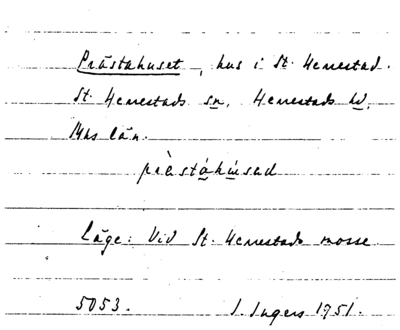 Prästahuset, hus i St. Herrestad.
St. Herrestads sn, Herrestads hd,
Mhs län.
prästáhúsad
Läge: Vid St. Herrestads mosse
5053. I. Ingers 1951.